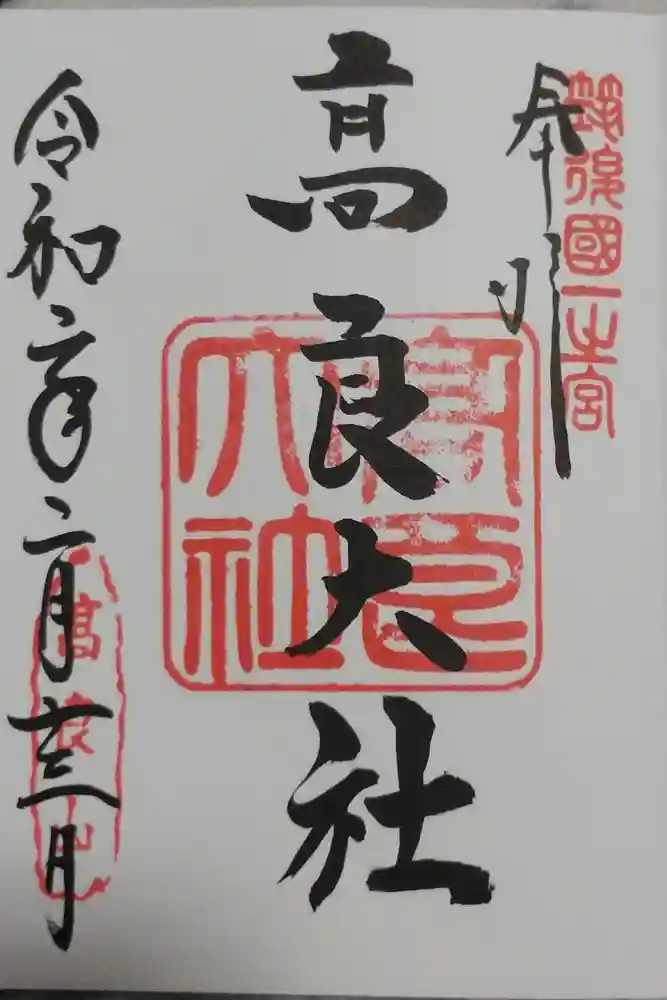 筑後國一之宮
奉拝
高良大社
高良大社
令和二年二月廿三日
高良山